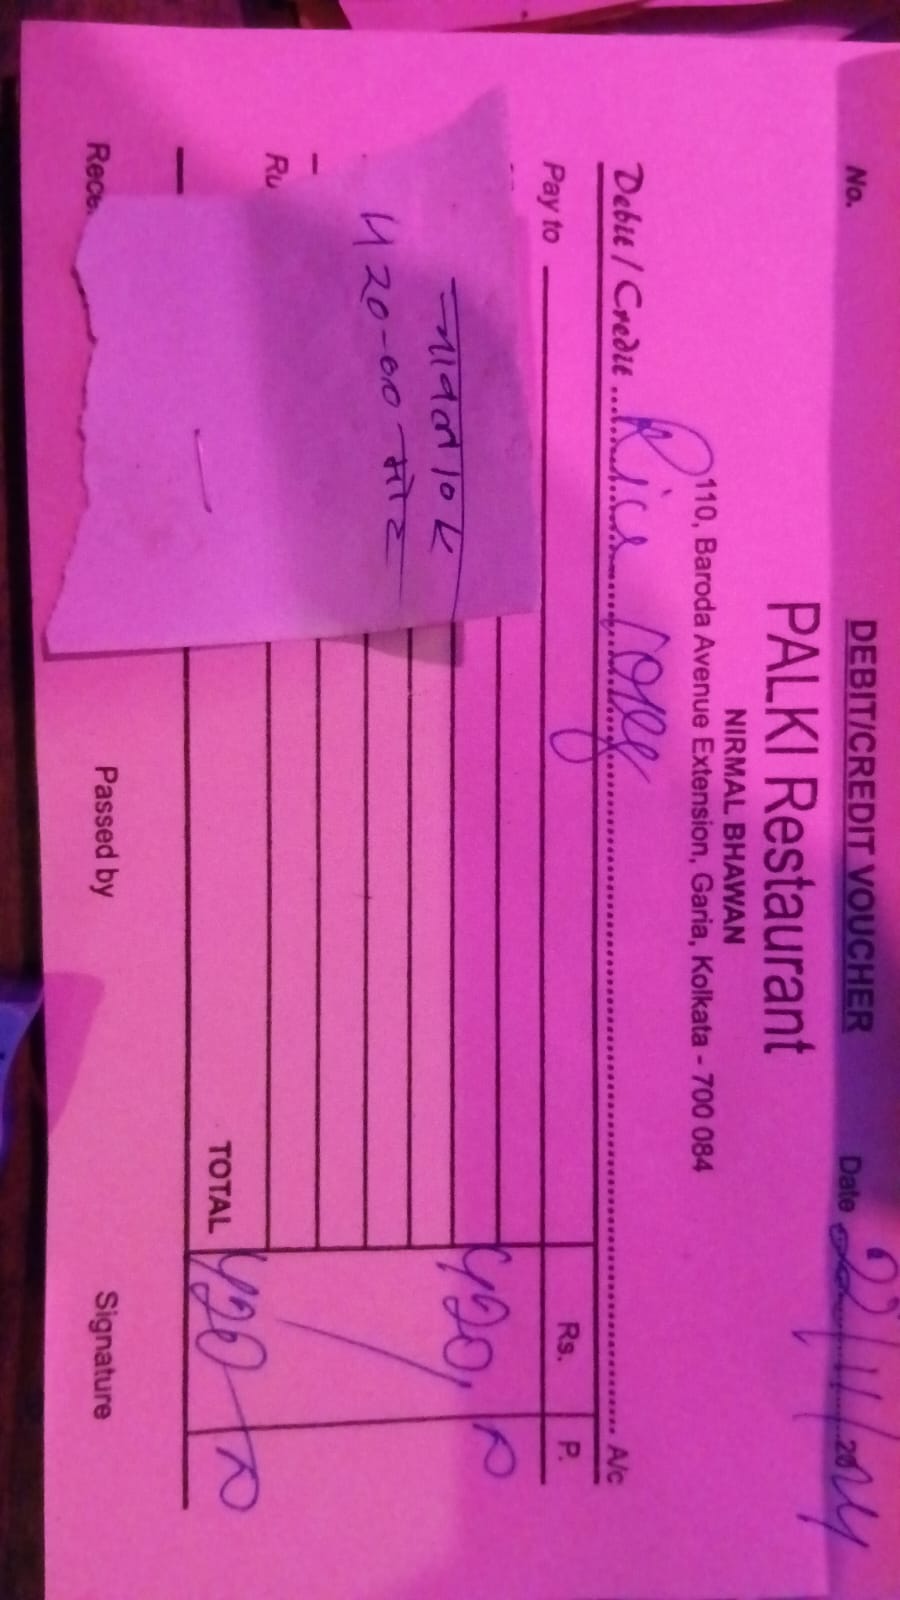 DEBIT/CREDIT VOUCHER
No. Date 2/11/2024
PALKI Restaurant
NIRMAL BHAWAN
110, Baroda Avenue Extension, Garia, Kolkata - 700 084
Debit / Credit Rice A/c
Pay to Rs. P.
420,
चावल 10 K
420-00
Ru
TOTAL 420
Rece Passed by Signature